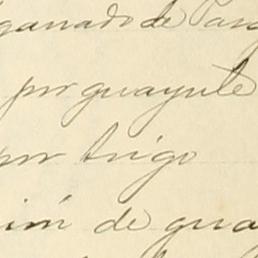 ganado de Pas
por guayule
por trigo
ión de gua